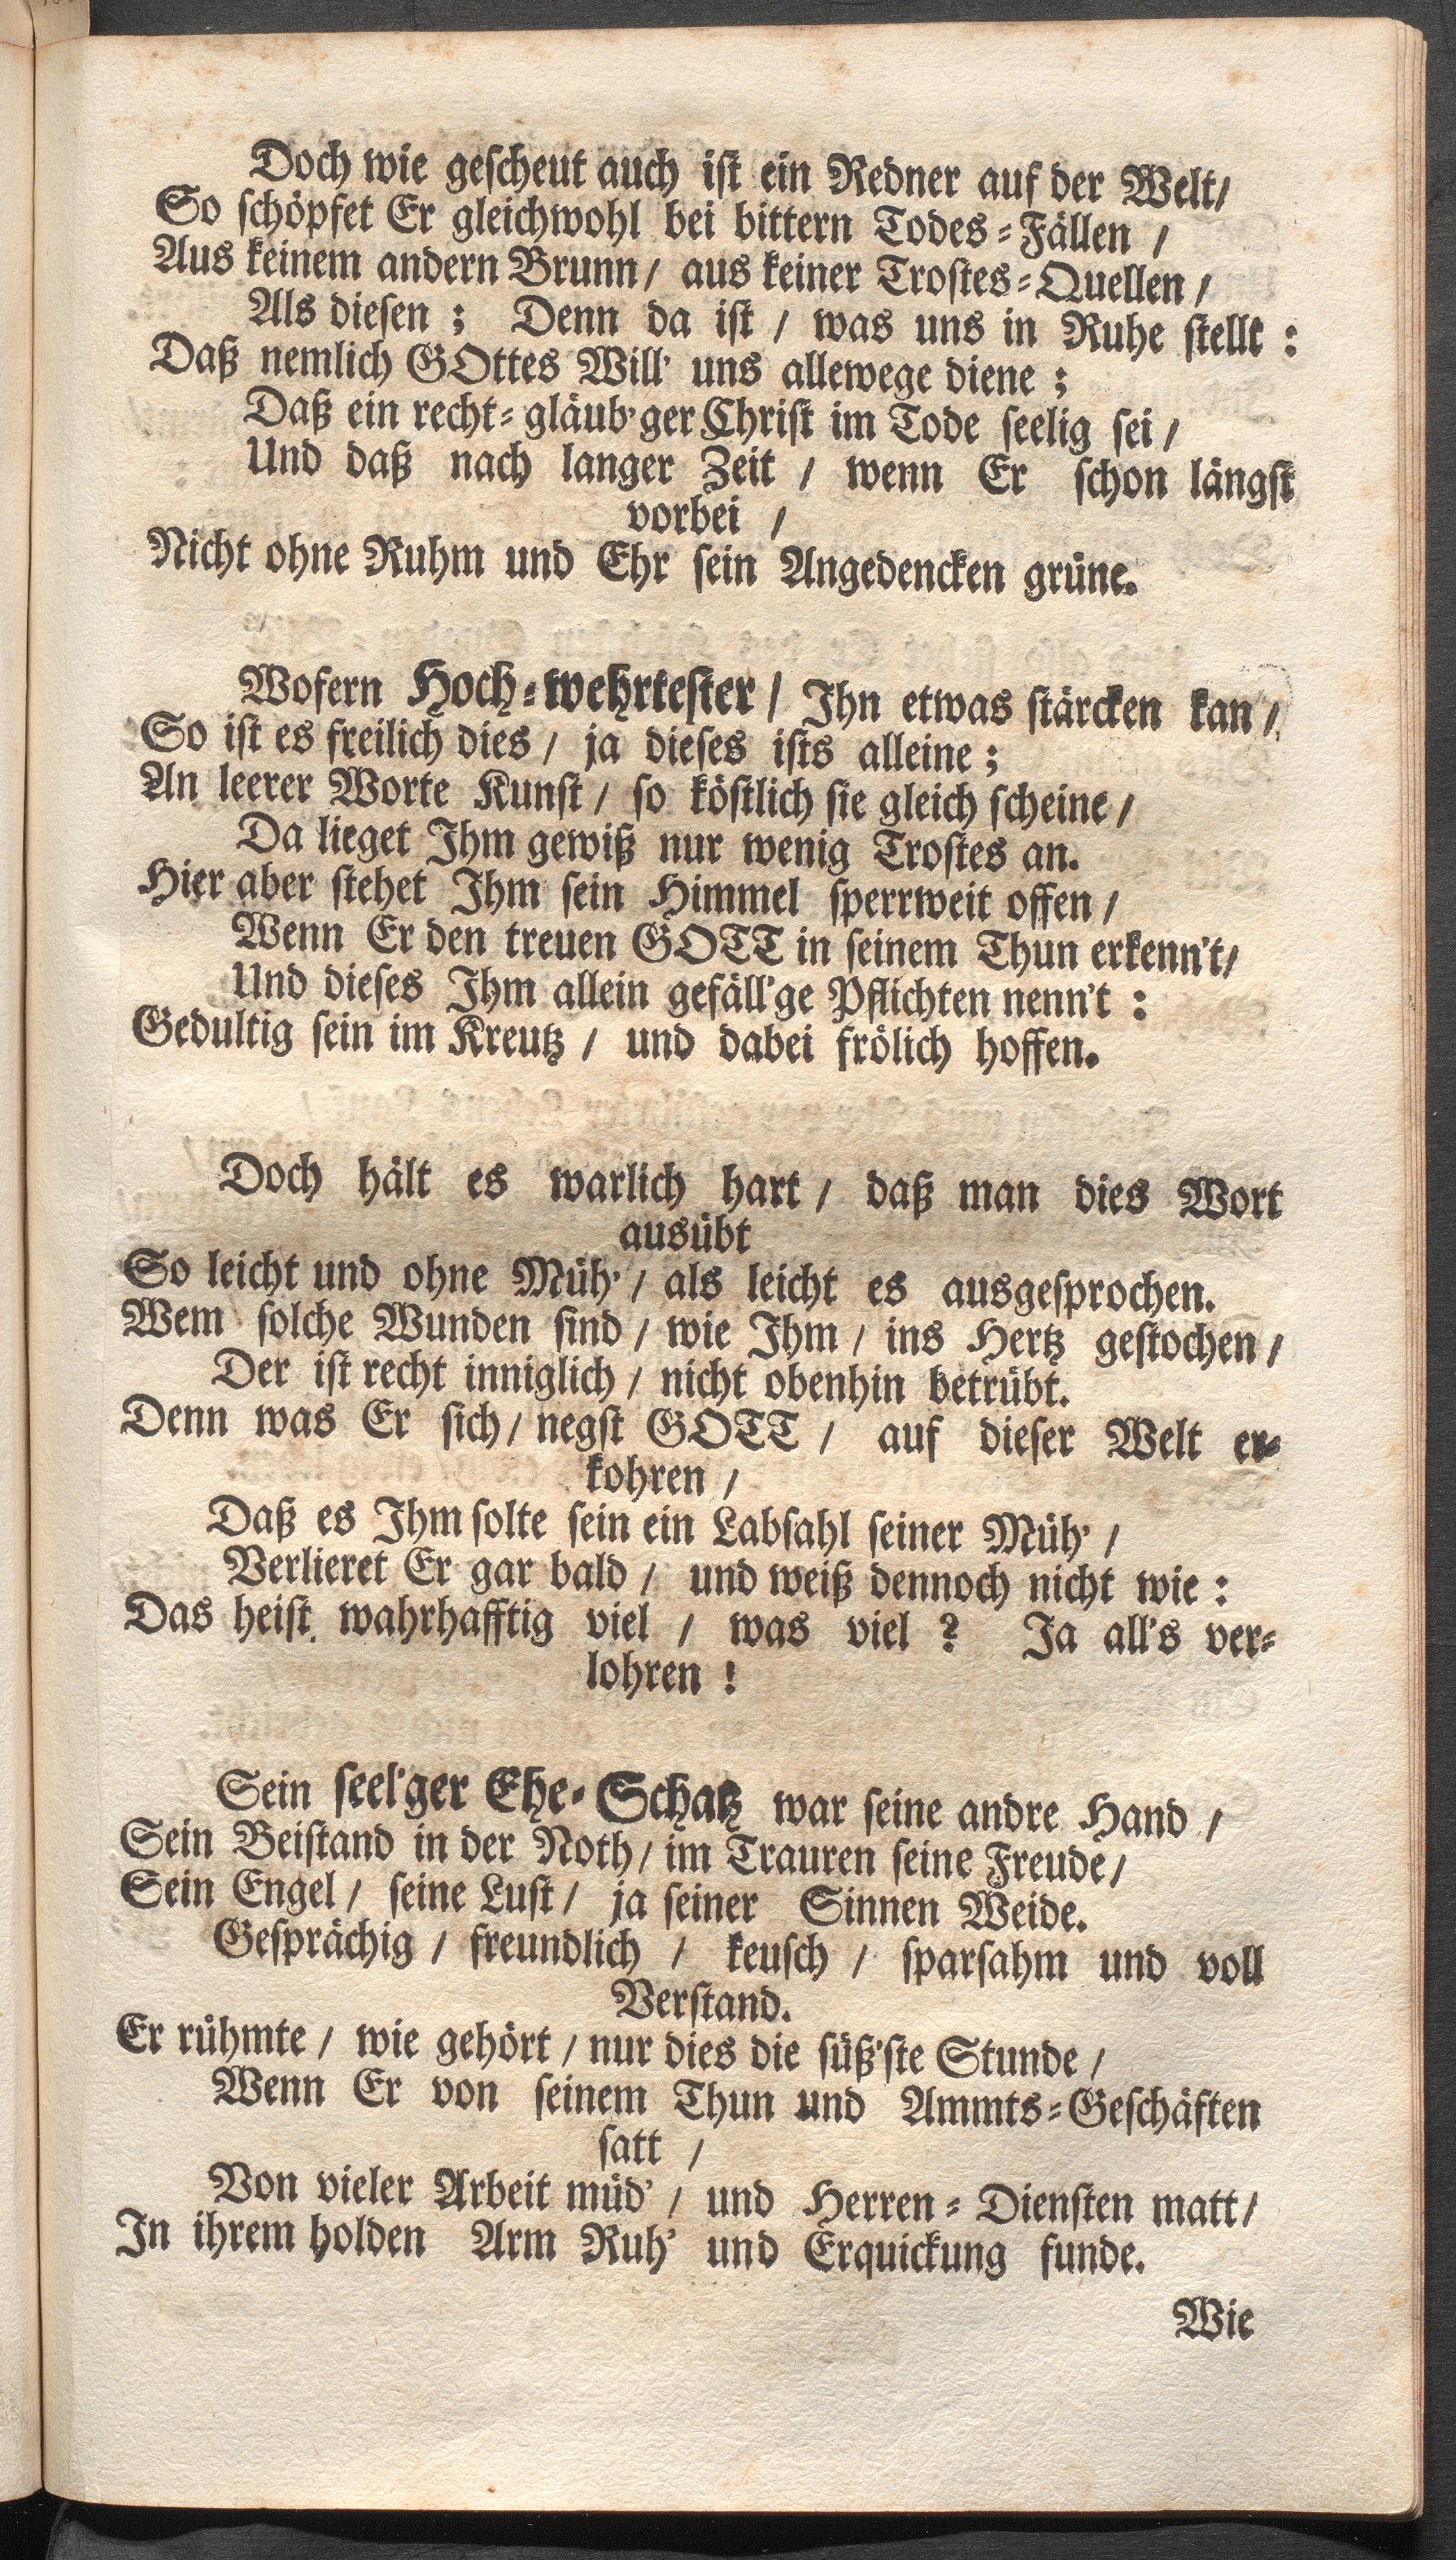 Doch wie geſcheut auch iſt ein Redner auf der Welt/
So ſchöpfet Er gleichwohl bei bittern Todes-Fällen /
Aus keinem andern Brunn/ aus keiner Troſtes-Quellen /
Als dieſen ; Denn da iſt / was uns in Ruhe ſtellt :
Daß nemlich GOttes Will' uns allewege diene ;
Daß ein recht-gläub'ger Chriſt im Tode ſeelig ſei /
Und daß nach langer Zeit / wenn Er ſchon längſt
vorbei /
Nicht ohne Ruhm und Ehr ſein Angedencken grüne.
Wofern Hoch-wehrteſter / Ihn etwas ſtärcken kan /
So iſt es freilich dies / ja dieſes iſts alleine ;
An leerer Worte Kunſt / ſo köſtlich ſie gleich ſcheine /
Da lieget Ihm gewiß nur wenig Troſtes an.
Hier aber ſtehet Ihm ſein Himmel ſperrweit offen /
Wenn Er den treuen GOTT in ſeinem Thun erkenn't/
Und dieſes Ihm allein gefäll'ge Pflichten nenn't :
Gedultig ſein im Kreutz / und dabei frölich hoffen.
Doch hält es warlich hart / daß man dies Wort
ausübt
So leicht und ohne Müh' / als leicht es ausgeſprochen.
Wem ſolche Wunden ſind / wie Ihm / ins Hertz geſtochen /
Der iſt recht inniglich / nicht obenhin betrübt.
Denn was Er ſich / negſt GOTT / auf dieſer Welt er-
kohren /
Daß es Ihm ſolte ſein ein Labſahl ſeiner Müh' /
Verlieret Er gar bald / und weiß dennoch nicht wie :
Das heiſt wahrhafftig viel / was viel ? Ja all's ver-
lohren !
Sein ſeel'ger Ehe-Schatz war ſeine andre Hand /
Sein Beiſtand in der Noth / im Trauren ſeine Freude /
Sein Engel / ſeine Luſt / ja ſeiner Sinnen Weide.
Geſprächig / freundlich / keuſch / ſparſahm und voll
Verſtand.
Er rühmte / wie gehört / nur dies die ſüß'ſte Stunde /
Wenn Er von ſeinem Thun und Ammts-Geſchäften
ſatt /
Von vieler Arbeit müd' / und Herren-Dienſten matt /
In ihrem holden Arm Ruh' und Erquickung funde.
Wie